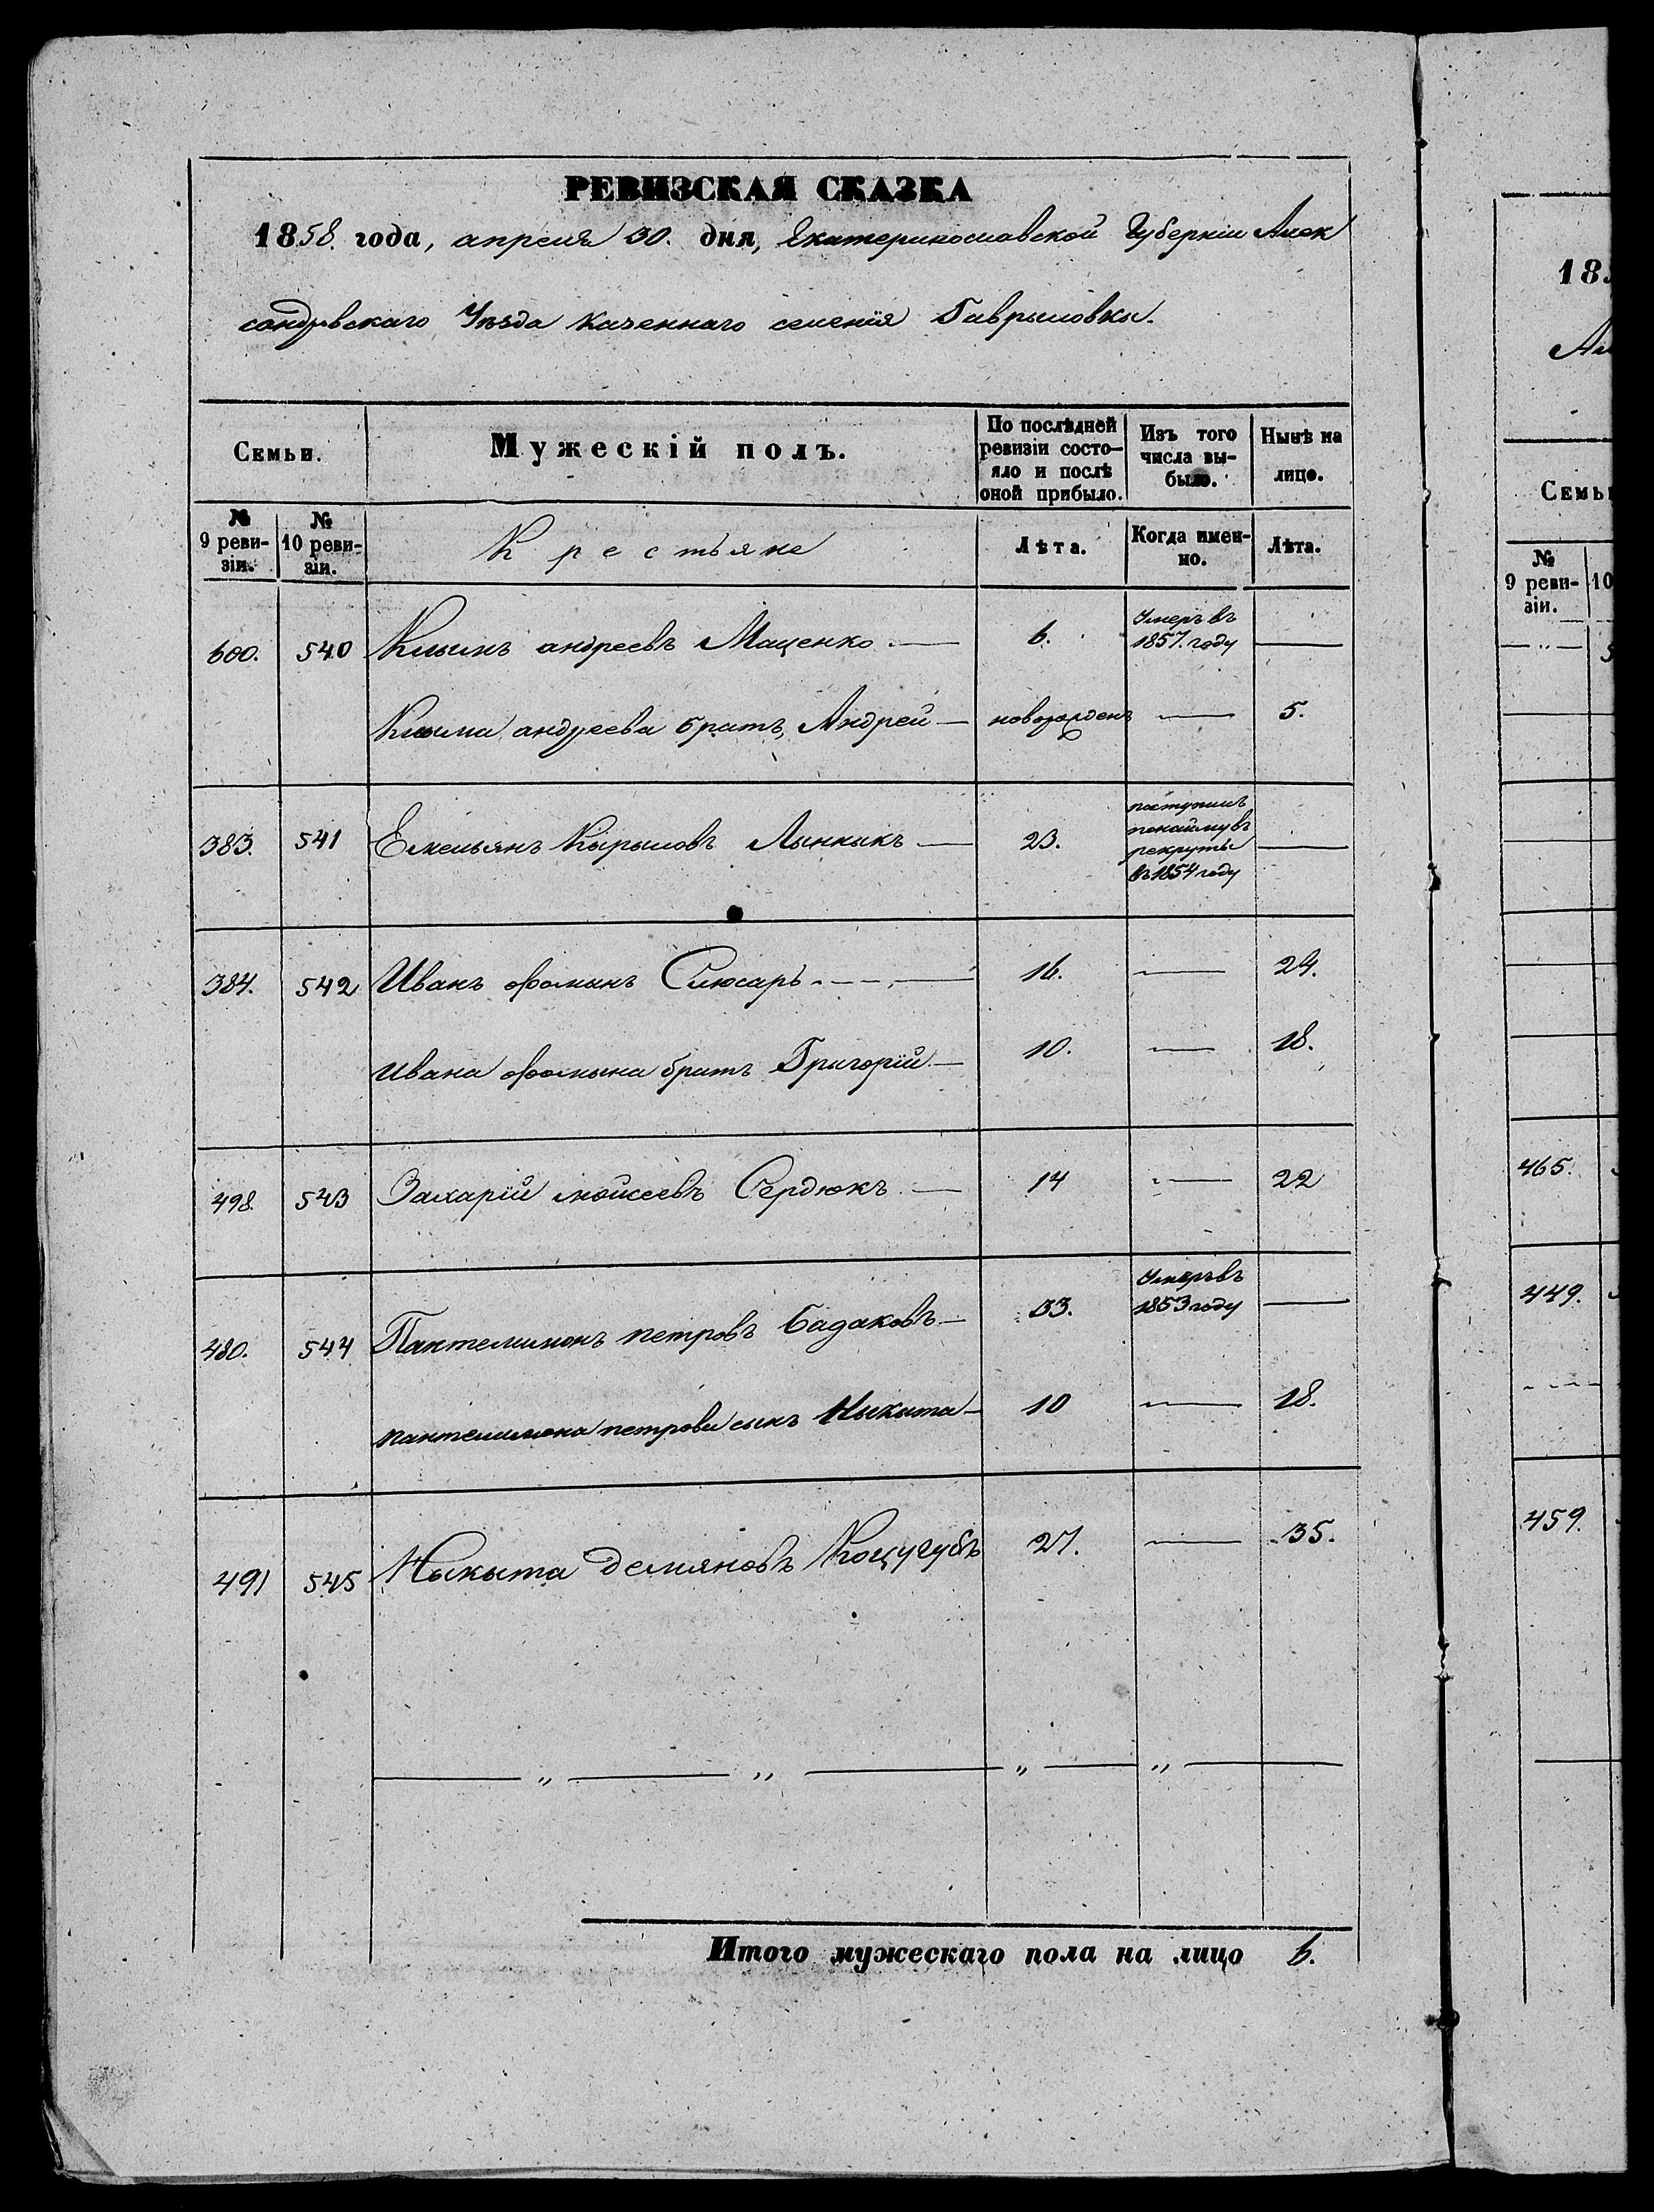 РЕВИЗСКАЯ СКАЗКА
1858. года, апреля 30. дня, Екатеринославской Губерніи Алек
сандровскаго Уѣзда казеннаго селенія Гаврыловки.
Семьи.
Мужескій полъ.
По послѣдней ревизіи состо-
яло и послѣ оной прибыло.
Изъ того числа вы-
было.
Нынѣ на лицо.
№ 9 реви-
зіи.
№ 10 реви-
зіи.
Крестьяне
Лѣта.
Когда имен-
но.
Лѣта.
600. 540 Клымъ андреевъ Маценко — 6. Умеръ въ 1857. году —
Клыма андреева братъ, Андрей — новорожденъ — 5.
383. 541 Емельянъ Кырыловъ Лынныкъ — 23. поступилъ понайму въ рекруты въ 1854 году —
384. 542 Иванъ Фомынъ Слюсарь — 16. — 24.
Ивана Фомына братъ Григорій — 10. — 18.
498. 543 Захарій мойсеевъ Сердюкъ — 14 — 22
480. 544 Пантелимонъ петровъ Бадаковъ — 33. Умеръ въ 1853 году —
пантелимона петрова сынъ Ныкыта — 10 — 18.
491 545 Ныкыта демяновъ Коцугубъ 27. — 35.
— „ — „ — „ — „ —
Итого мужескаго пола на лицо 6.
18
Ал
Семьи
№ 9 реви-
зіи.
10
— „ — 5
465.
449.
459.